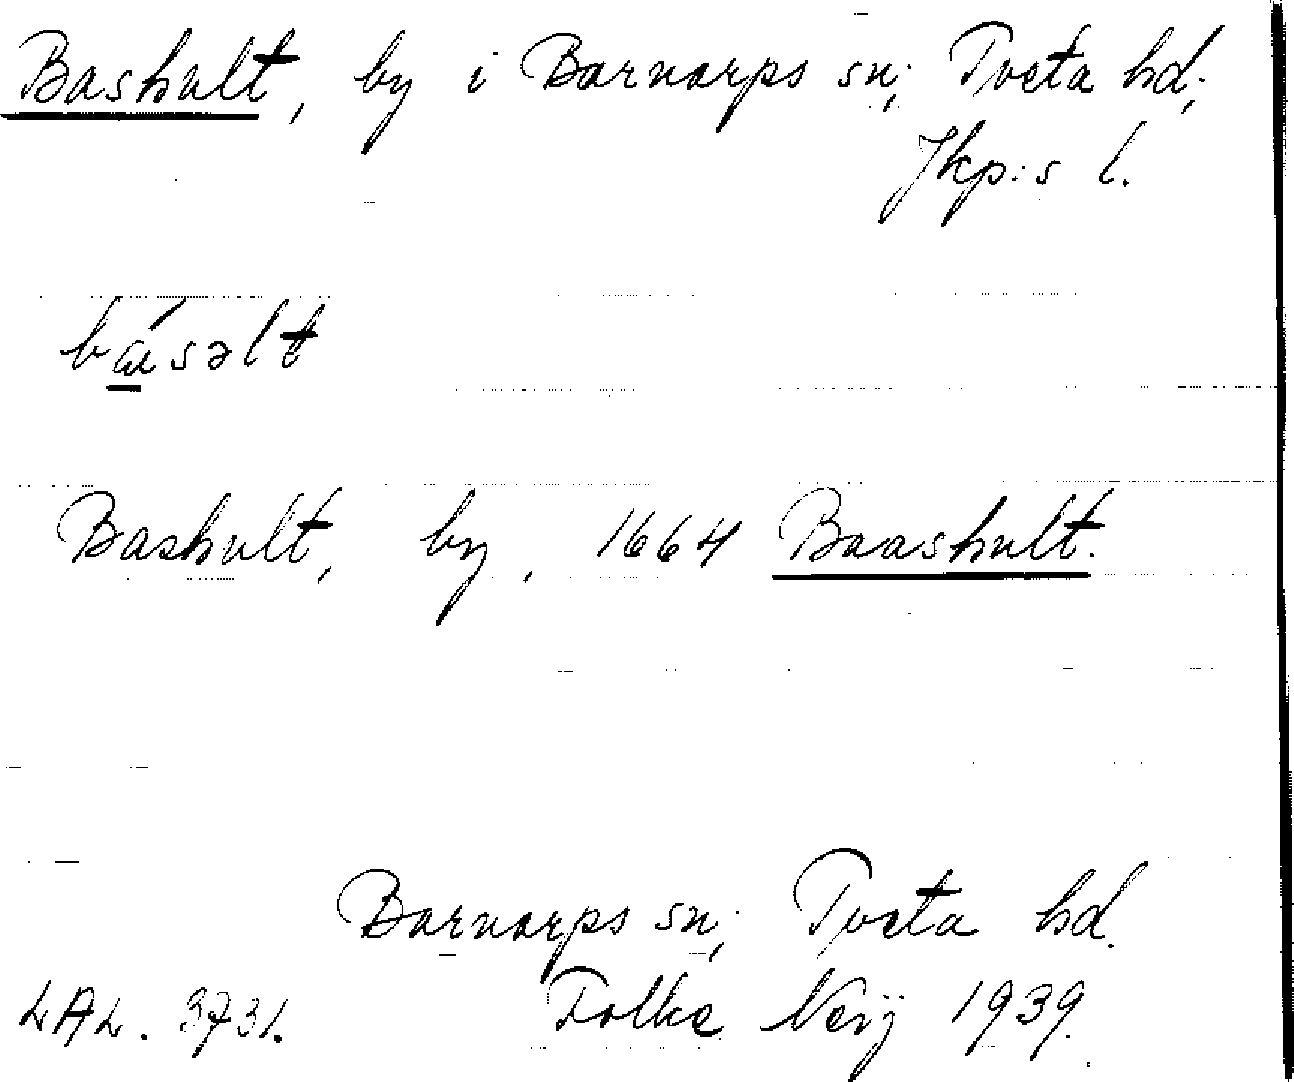 Bashult, by i Barnarps sn; Tveta hd;
Jkp:s l.
básəlt
Bashult, by, 1664 Baashult.
Barnarps sn; Tveta hd.
LAL. 3731. Folke Neij 1939.